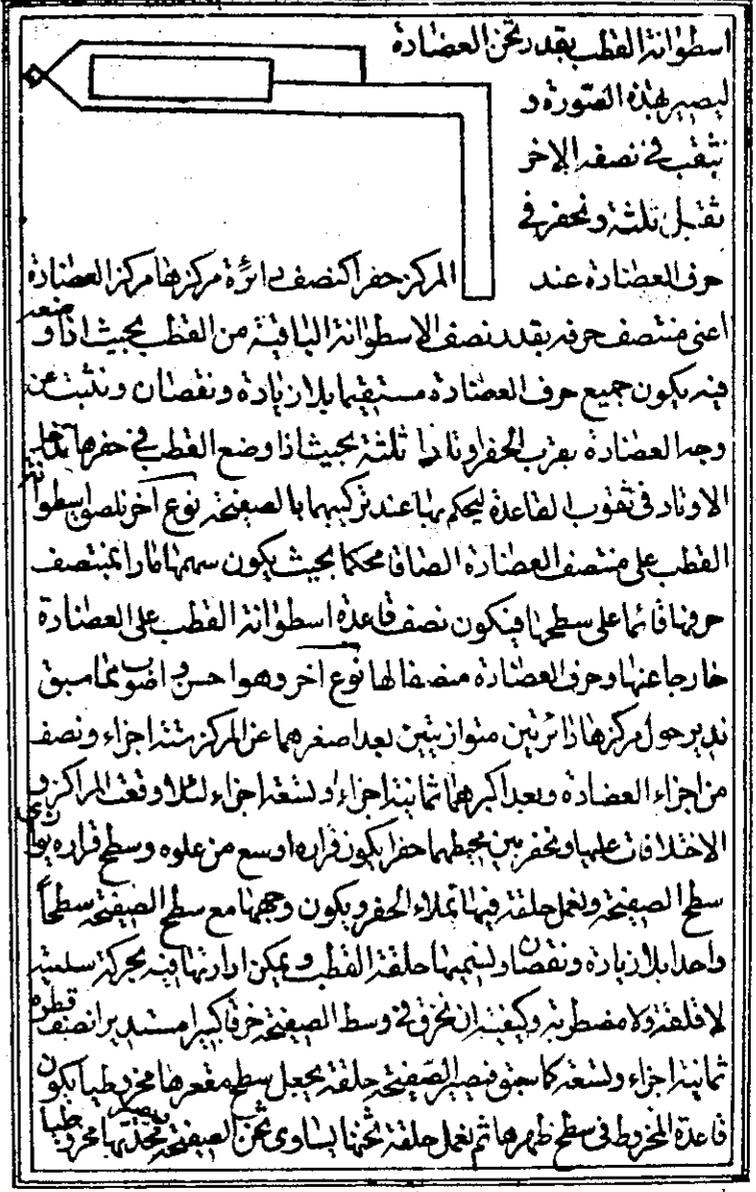 اسطوانة القطب بقدر ثخن العضادة
ليصير بهذه الصورة و
نثقب في نصفه الاخر
ثقبا ثلثة ونحفر في
حرف العضادة عند المركز حفرا كنصف دائرة مركزها مركز العضادة
اعنى منتصف حرفه بقدر نصف الاسطوانة الباقية من القطب بحيث اذا وضعه
فيه يكون جميع حرف العضادة مستقيما بلا زيادة ونقصان ونثبت عن
وجه العضادة بقرب الحفر اوتادا ثلثة بحيث اذا وضع القطب في حفرها
الاوتاد في ثقوب القاعدة ليحكم بها عند تركيبهما بالصفيحة نوع اخر نلصق اسطوانة
القطب على منتصف العضادة الصاقا محكما بحيث يكون سهمها مارا بمنتصف
حرفها قائما على سطحها فيكون نصف قاعدة اسطوانة القطب على العضادة
خارجا عنها وحرف العضادة منصفا لها نوع اخر وهو احسن واصوب مما سبق
ندير حول مركزها دائرتين متوازيتين بعد اصغرهما عن المركز ستة اجزاء ونصف
من اجزاء العضادة وبعد اكبرهما ثمانية اجزاء او تسعة اجزاء لئلا وقعت المراكز و
الاختلافات عليها ونحفر بين محيطهما حفرا يكون قراره اوسع من علوه وسطح قراره يوازى
سطح الصفيحة ونعمل حلقة فيها تملاء الحفر ويكون وجهها مع سطح الصفيحة سطحاً
واحدا بلا زيادة ونقصان ونسميها حلقة القطب ويمكن ادارتها فيه بحركة سلسة
لا قلقة ولا مضطربة وكيفيته ان نخرق في وسط الصفيحة خرقا كبيرا مستديرا نصف قطره
ثمانية اجزاء وتسعة كما سبق فتصير الصفيحة حلقة يجعل سطح مقعرها مخروطيا يكون
قاعدة المخروط في سطح ظهرها ثم نعمل حلقة ثخنها يساوى ثخن الصفيحة محدبها مخروطيا